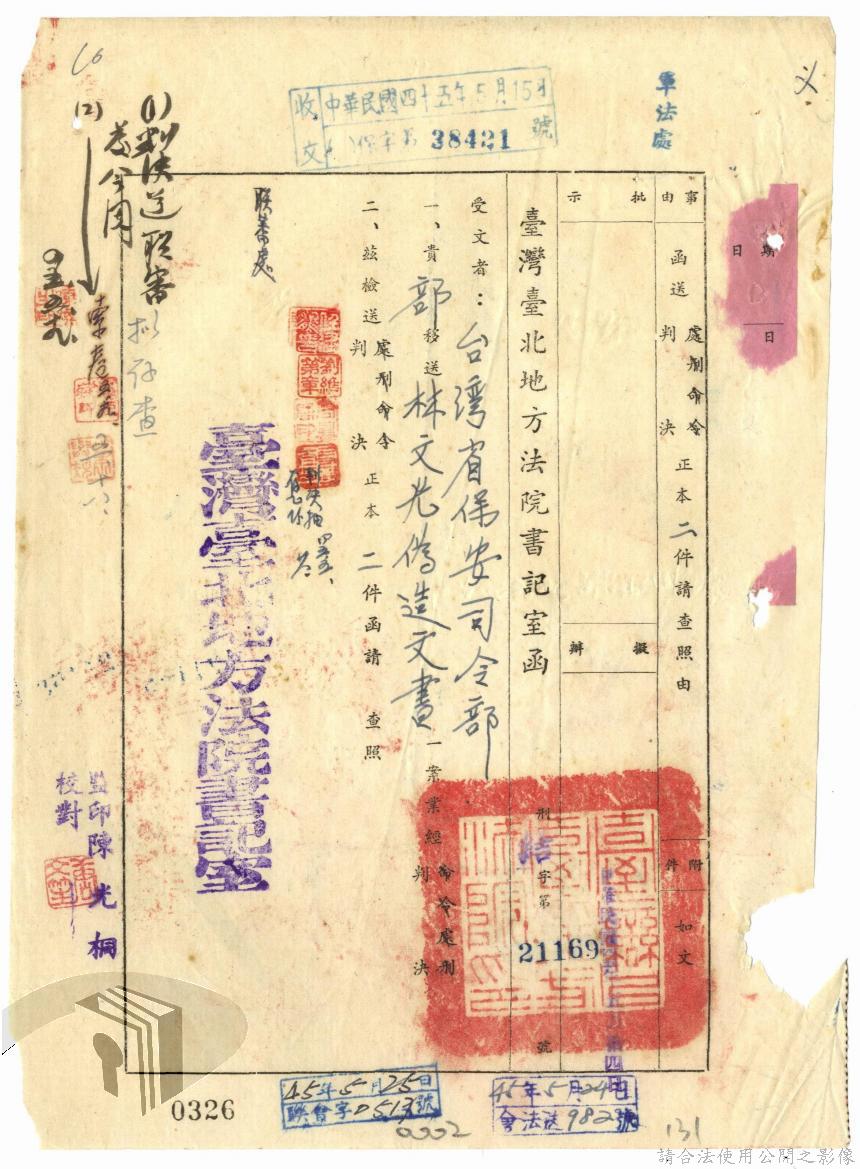 軍法處
收文
中華民國四十五年5月15日
保字第38421號
事由
函送處刑命令判決正本二件請查照由
附件
如文
批示
擬辦
臺灣臺北地方法院書記室函
刑
結
字第
21169
號
受文者：台灣省保安司令部
一、貴部移送林文光偽造文書一案業經命令處刑判決
二、茲檢送處刑命令判決正本二件函請查照
臺灣臺北地方法院書記室
聯審處
(1)判決送聯審
(2)
擬存查
監印陳光桐
校對
45年5月25日
聯會字0513號
45年5月24日
982號
0326
0002
131
日期
日
請合法使用公開之影像